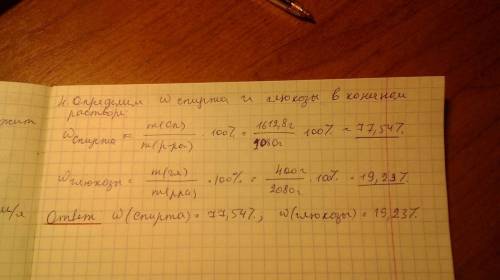 4. Определим w спирта и глюкозы в конечном
растворе:
wспирта = m(сп) / m(р-ра) · 100% = 1612,8г / 2080г · 100% = 77,54%.
wглюкозы = m(гл) / m(рра) · 100% = 400г / 2080г · 100% = 19,23%.
Ответ w(спирта) = 77,54%, w(глюкозы) = 19,23%.